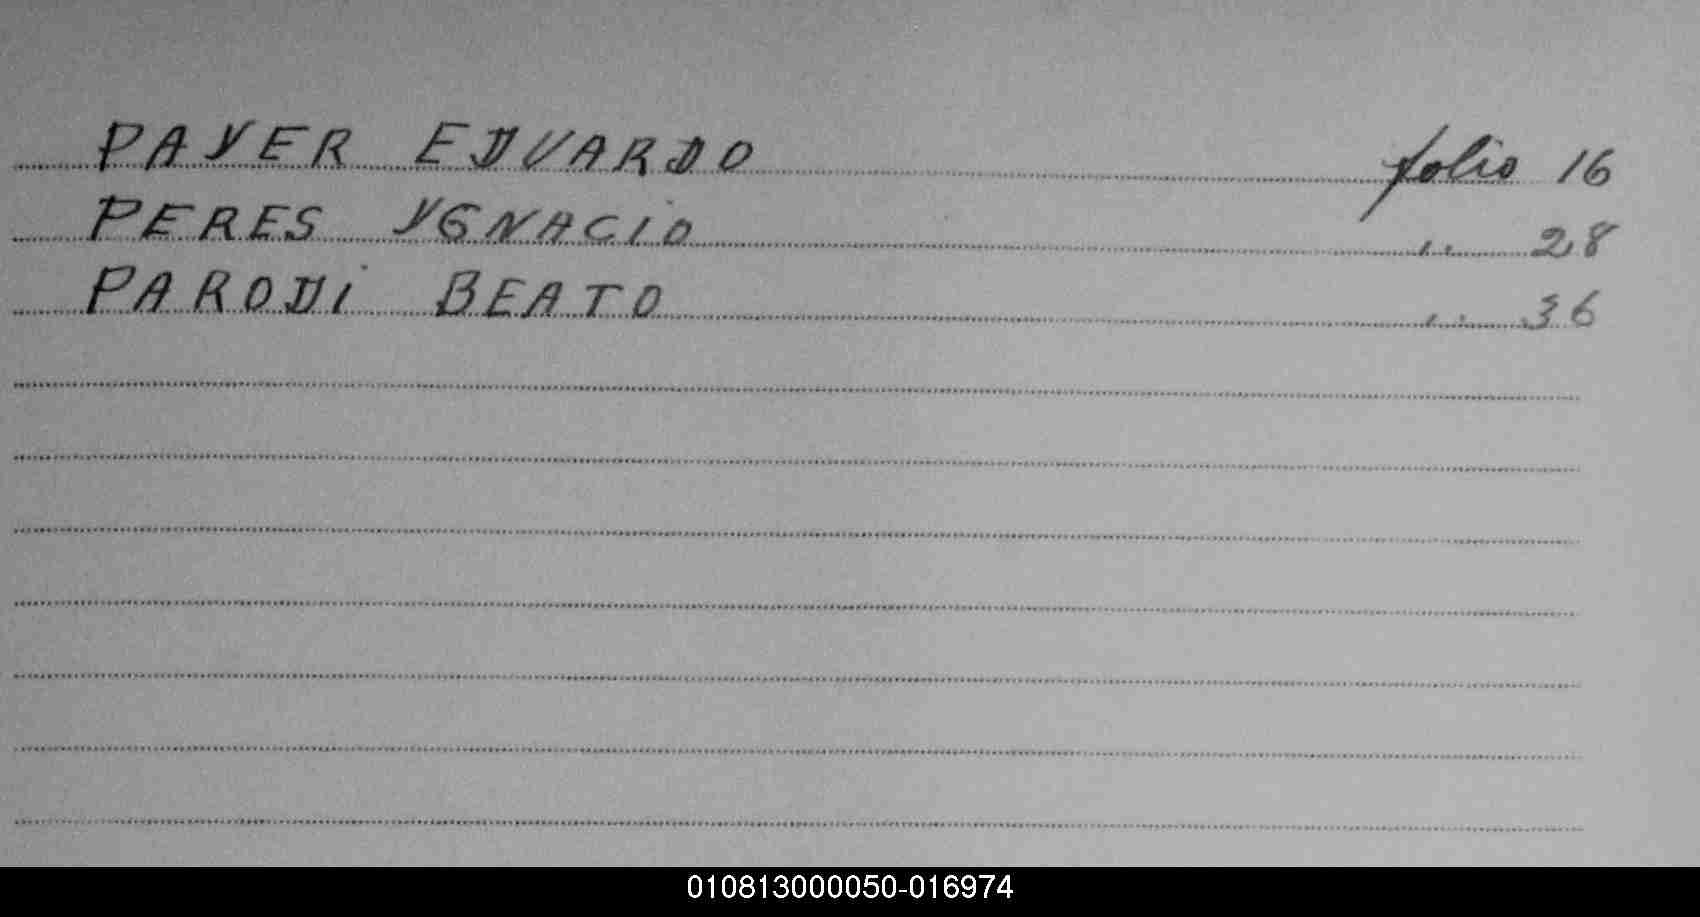 PAYER EDUARDO folio 16
PERES YGNACIO " 28
PARODI BEATO " 36
010813000050-016974